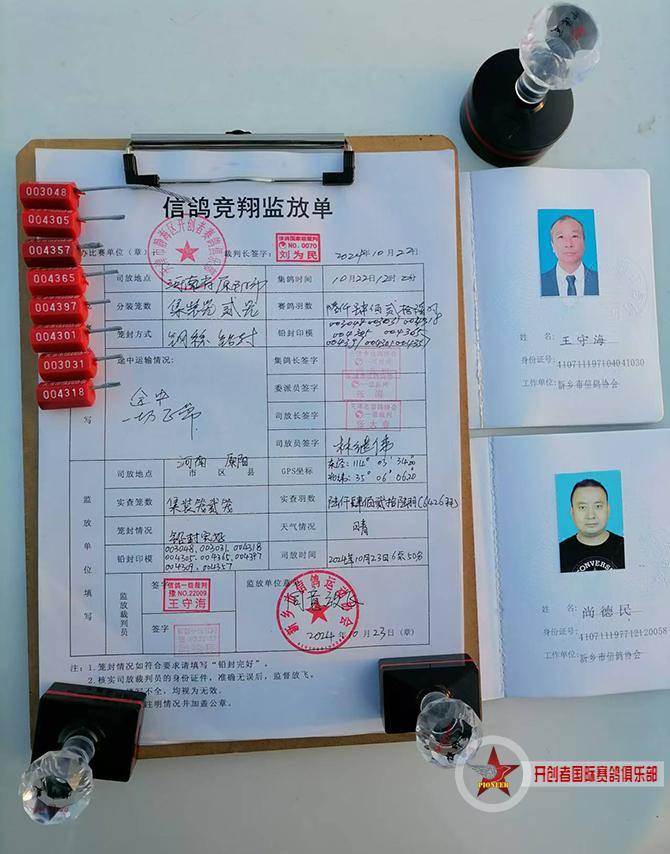 信鸽竞翔监放单
办比赛单位（章）
裁判长签字：
信鸽国家级裁判
NO.0070
刘为民
2024年10月22日
司放地点
集鸽时间
10月22日12时
分装笼数
集装笼贰笼
赛鸽羽数
笼封方式
钢丝铅封
铅封印模
途中运输情况：
途中
一切正常
集鸽长签字
委派员签字
司放长签字
司放员签字
林继伟
司放地点
河南 原阳
市 区 县
GPS坐标
东经：114° 03′ 3420
北纬：35° 06′ 0620
实查笼数
集装笼贰笼
实查羽数
陆仟肆佰贰拾陆羽(6426羽)
笼封情况
铅封完好
天气情况
晴
铅封印模
003048、003031、004318
004305、004365、004397
004357
司放时间
2024年10月23日6时50分
监放单位填写
监放裁判员
签字
信鸽一级裁判
豫NO.22009
王守海
签字
监放单位意见
同意放飞
新乡市信鸽运动协会
2024年10月23日（章）
注：1.笼封情况如符合要求请填写“铅封完好”
2.核实司放裁判员的身份证件，准确无误后，监督放飞。
写不全，均视为无效。
注明情况并加盖公章。
003048
004305
004357
004365
004397
004301
003031
004318
姓 名：王守海
身份证号：410711197104041030
工作单位：新乡市信鸽协会
CONVERSE
姓 名：尚德民
身份证号：410711197712120058
工作单位：新乡市信鸽协会
PIONEER
开创者国际赛鸽俱乐部